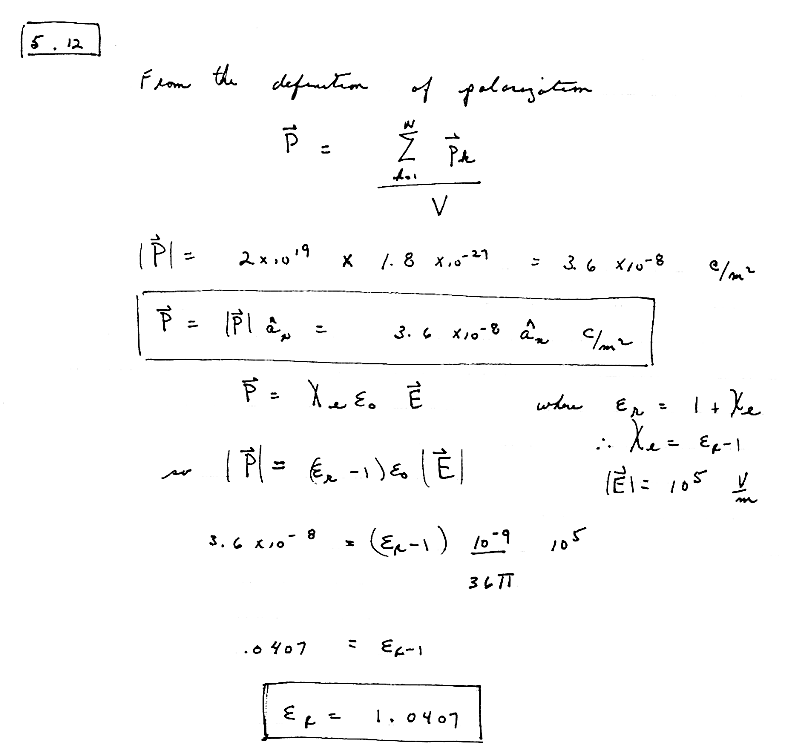 5.12
From the definition of polarization
P⃗ = Σ_{k=1}^{N} P⃗k / V
|P⃗| = 2×10^19 × 1.8 ×10^-27 = 3.6 ×10^-8 C/m²
P⃗ = |P⃗| âₓ = 3.6 ×10^-8 âₓ C/m²
P⃗ = χe ε₀ E⃗ where εr = 1 + χe
∴ χe = εr-1
so |P⃗| = (εr -1)ε₀ |E⃗| |E⃗| = 10^5 V/m
3.6 ×10^-8 = (εr-1) 10^-9/36π 10^5
.0407 = εr-1
εr = 1.0407